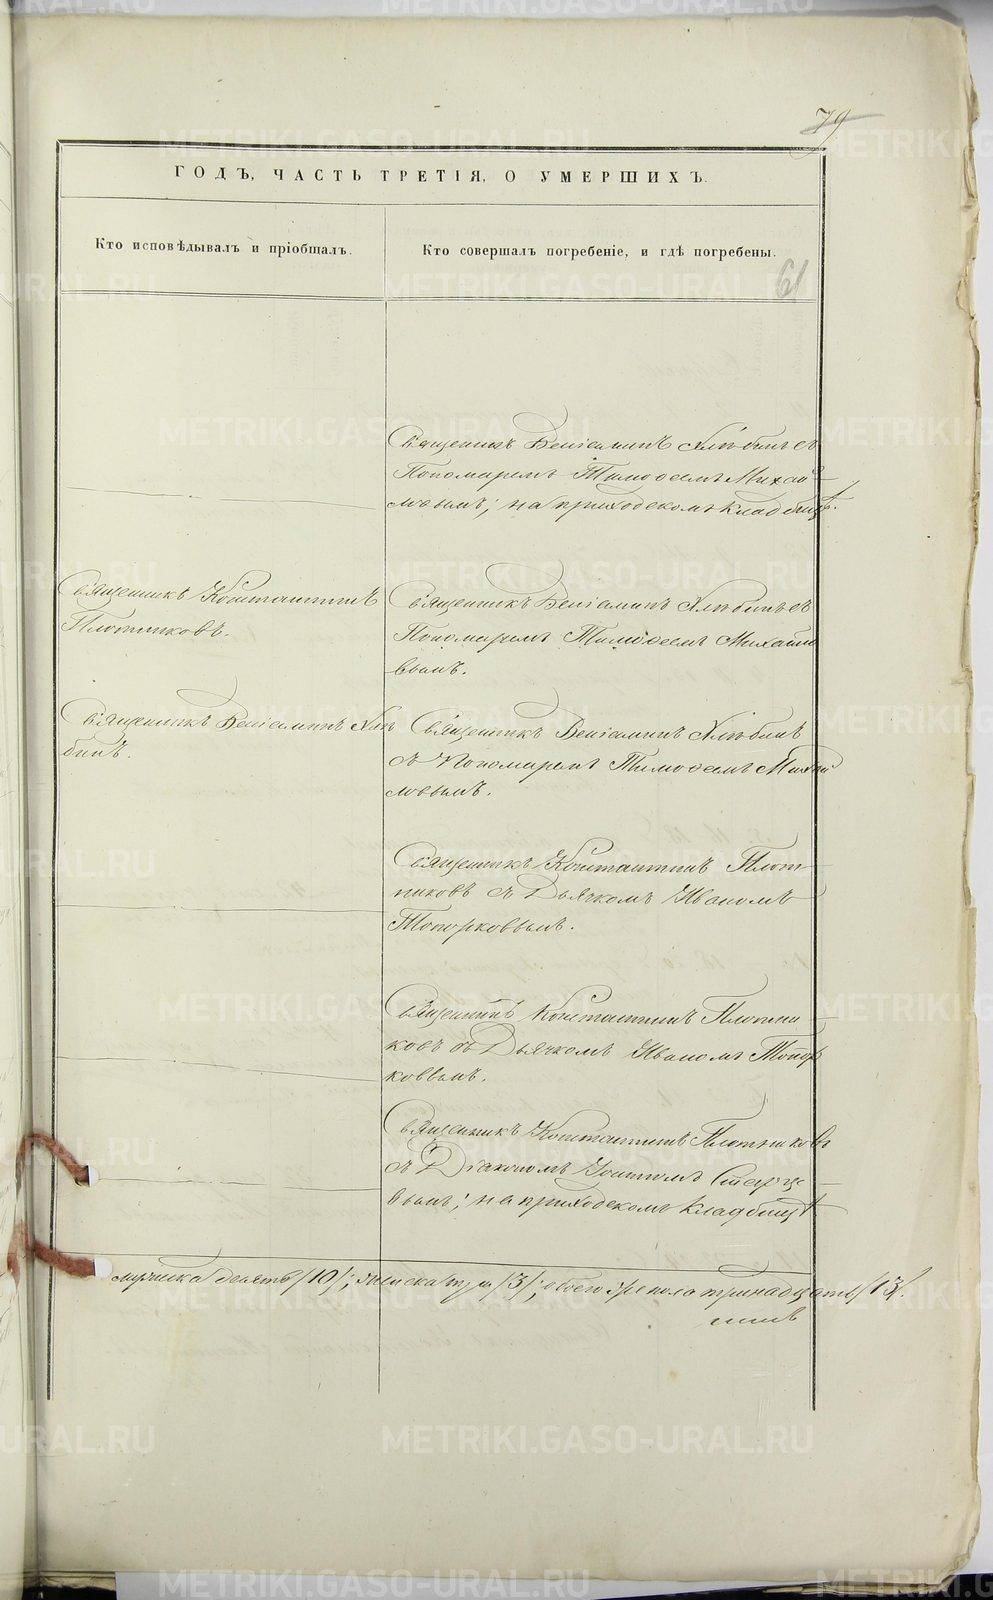 79
ГОДЪ, ЧАСТЬ ТРЕТІЯ, О УМЕРШИХЪ.
Кто исповѣдывалъ и пріобщалъ.
Кто совершалъ погребеніе, и гдѣ погребены.
61
Священникъ Веніаминъ Хлѣбинъ съ
Пономаремъ Тимоѳеемъ Михай-
ловымъ; на приходскомъ кладбищѣ.
Священникъ Константинъ
Плотниковъ.
Священникъ Веніаминъ Хлѣбинъ съ
Пономаремъ Тимоѳеемъ Михайло
вымъ.
Священникъ Веніаминъ Хлѣ
бинъ.
Священникъ Веніаминъ Хлѣбинъ
съ Пономаремъ Тимоѳеемъ Михай
ловымъ.
Священникъ Константинъ Плот-
никовъ съ Дьячкомъ Иваномъ
Топорковымъ.
Священникъ Константинъ Плотни-
ковъ съ Дьячкомъ Иваномъ Топор
ковымъ.
Священникъ Константинъ Плотниковъ
съ Діакономъ Старце
вымъ; на приходскомъ кладбищѣ
мужеска десять /10/; женска три /3/; обоего же пола тринадцать /13/.
METRIKI.GASO-URAL.RU